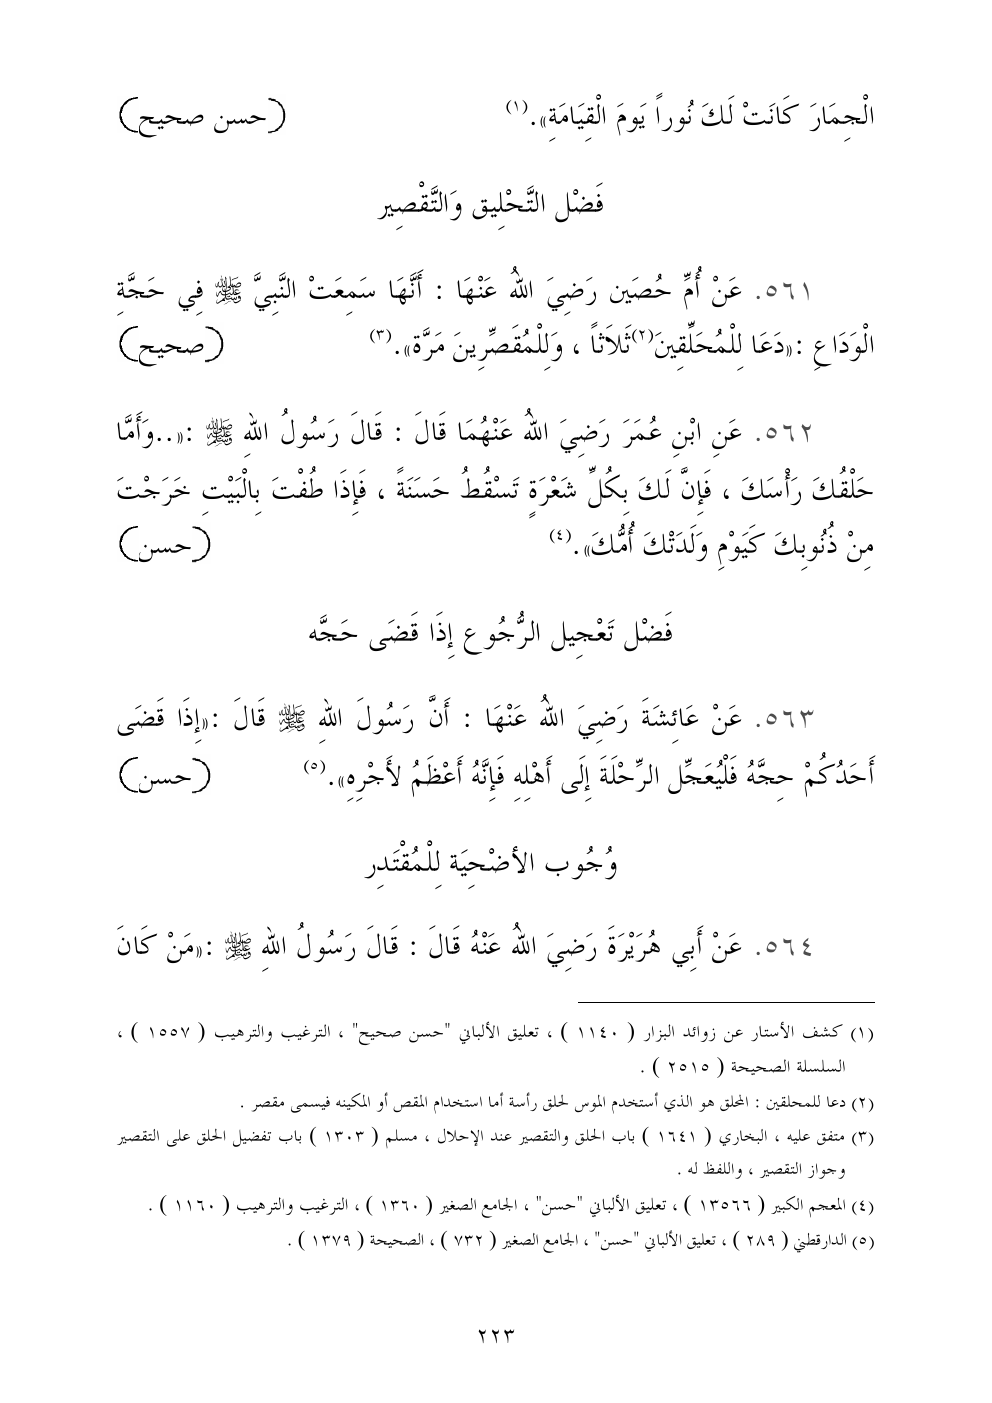 الْجِمَارَ كَانَتْ لَكَ نُوراً يَومَ الْقِيَامَةِ». (١) (حسن صحيح)
فَضْل التَّحْلِيق وَالتَّقْصِير
٥٦١. عَنْ أُمِّ حُصَين رَضِيَ اللهُ عَنْهَا : أَنَّهَا سَمِعَتْ النَّبِيَّ ﷺ فِي حَجَّةِ
الْوَدَاعِ :«دَعَا لِلْمُحَلِّقِينَ(٢)ثَلاَثاً ، وَلِلْمُقَصِّرِينَ مَرَّة». (٣) (صحيح)
٥٦٢. عَنِ ابْنِ عُمَرَ رَضِيَ اللهُ عَنْهُمَا قَالَ : قَالَ رَسُولُ اللهِ ﷺ :«..وَأَمَّا
حَلْقُكَ رَأْسَكَ ، فَإِنَّ لَكَ بِكُلِّ شَعْرَةٍ تَسْقُطُ حَسَنَةً ، فَإِذَا طُفْتَ بِالْبَيْتِ خَرَجْتَ
مِنْ ذُنُوبِكَ كَيَوْمِ وَلَدَتْكَ أُمُّكَ». (٤) (حسن)
فَضْل تَعْجِيل الرُّجُوع إِذَا قَضَى حَجَّه
٥٦٣. عَنْ عَائِشَةَ رَضِيَ اللهُ عَنْهَا : أَنَّ رَسُولَ اللهِ ﷺ قَالَ :«إِذَا قَضَى
أَحَدُكُمْ حِجَّهُ فَلْيُعَجِّل الرِّحْلَةَ إِلَى أَهْلِهِ فَإِنَّهُ أَعْظَمُ لأَجْرِهِ». (٥) (حسن)
وُجُوب الأضْحِيَة لِلْمُقْتَدِر
٥٦٤. عَنْ أَبِي هُرَيْرَةَ رَضِيَ اللهُ عَنْهُ قَالَ : قَالَ رَسُولُ اللهِ ﷺ :«مَنْ كَانَ
(١) كشف الأستار عن زوائد البزار ( ١١٤٠ ) ، تعليق الألباني "حسن صحيح" ، الترغيب والترهيب ( ١٥٥٧ ) ،
السلسلة الصحيحة ( ٢٥١٥ ) .
(٢) دعا للمحلقين : المحلق هو الذي أستخدم الموس لحلق رأسة أما استخدام المقص أو المكينه فيسمى مقصر .
(٣) متفق عليه ، البخاري ( ١٦٤١ ) باب الحلق والتقصير عند الإحلال ، مسلم ( ١٣٠٣ ) باب تفضيل الحلق على التقصير
وجواز التقصير ، واللفظ له .
(٤) المعجم الكبير ( ١٣٥٦٦ ) ، تعليق الألباني "حسن" ، الجامع الصغير ( ١٣٦٠ ) ، الترغيب والترهيب ( ١١٦٠ ) .
(٥) الدارقطني ( ٢٨٩ ) ، تعليق الألباني "حسن" ، الجامع الصغير ( ٧٣٢ ) ، الصحيحة ( ١٣٧٩ ) .
٢٢٣